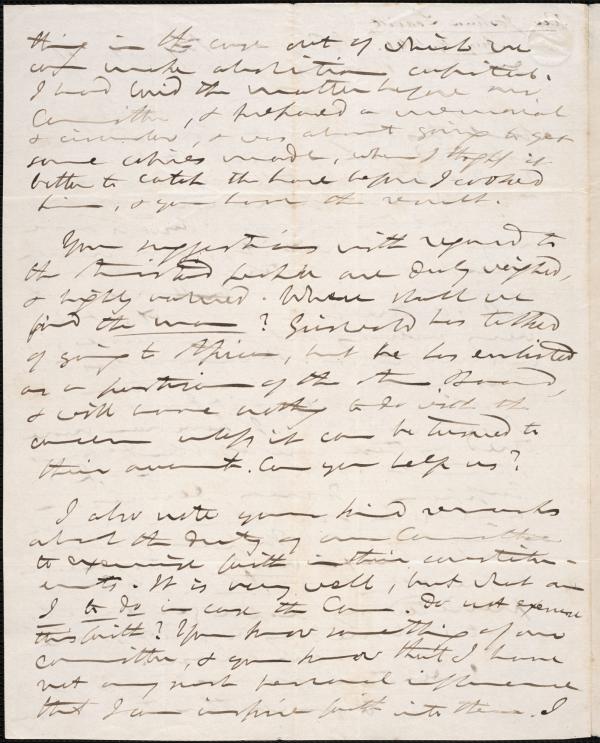 thing in the case out of which we
can make abolition capital.
I had laid the matter before our
Committee, & prepared a memorial
& circular, & was about going to get
some copies made, when I thought it
better to catch the hare before I cooked
him, & you have the result.
Your suggestions with regard to
the are duly weighed,
& highly valued. Where shall we
find the man? Griswold has talked
of going to Africa, but he has enlisted
as a partizan of the other Board,
& will have nothing to do with the
concern unless it can be turned to
their account. Can you help us?
I also note your kind remarks
about the duty of our Committee
to exercise faith in their constitu-
ents. It is very well, but what am
I to do in case the Com. do not exercise
this faith? You know something of our
committee, & you know that I have
not any such personal influence
that I can inspire faith into them. I